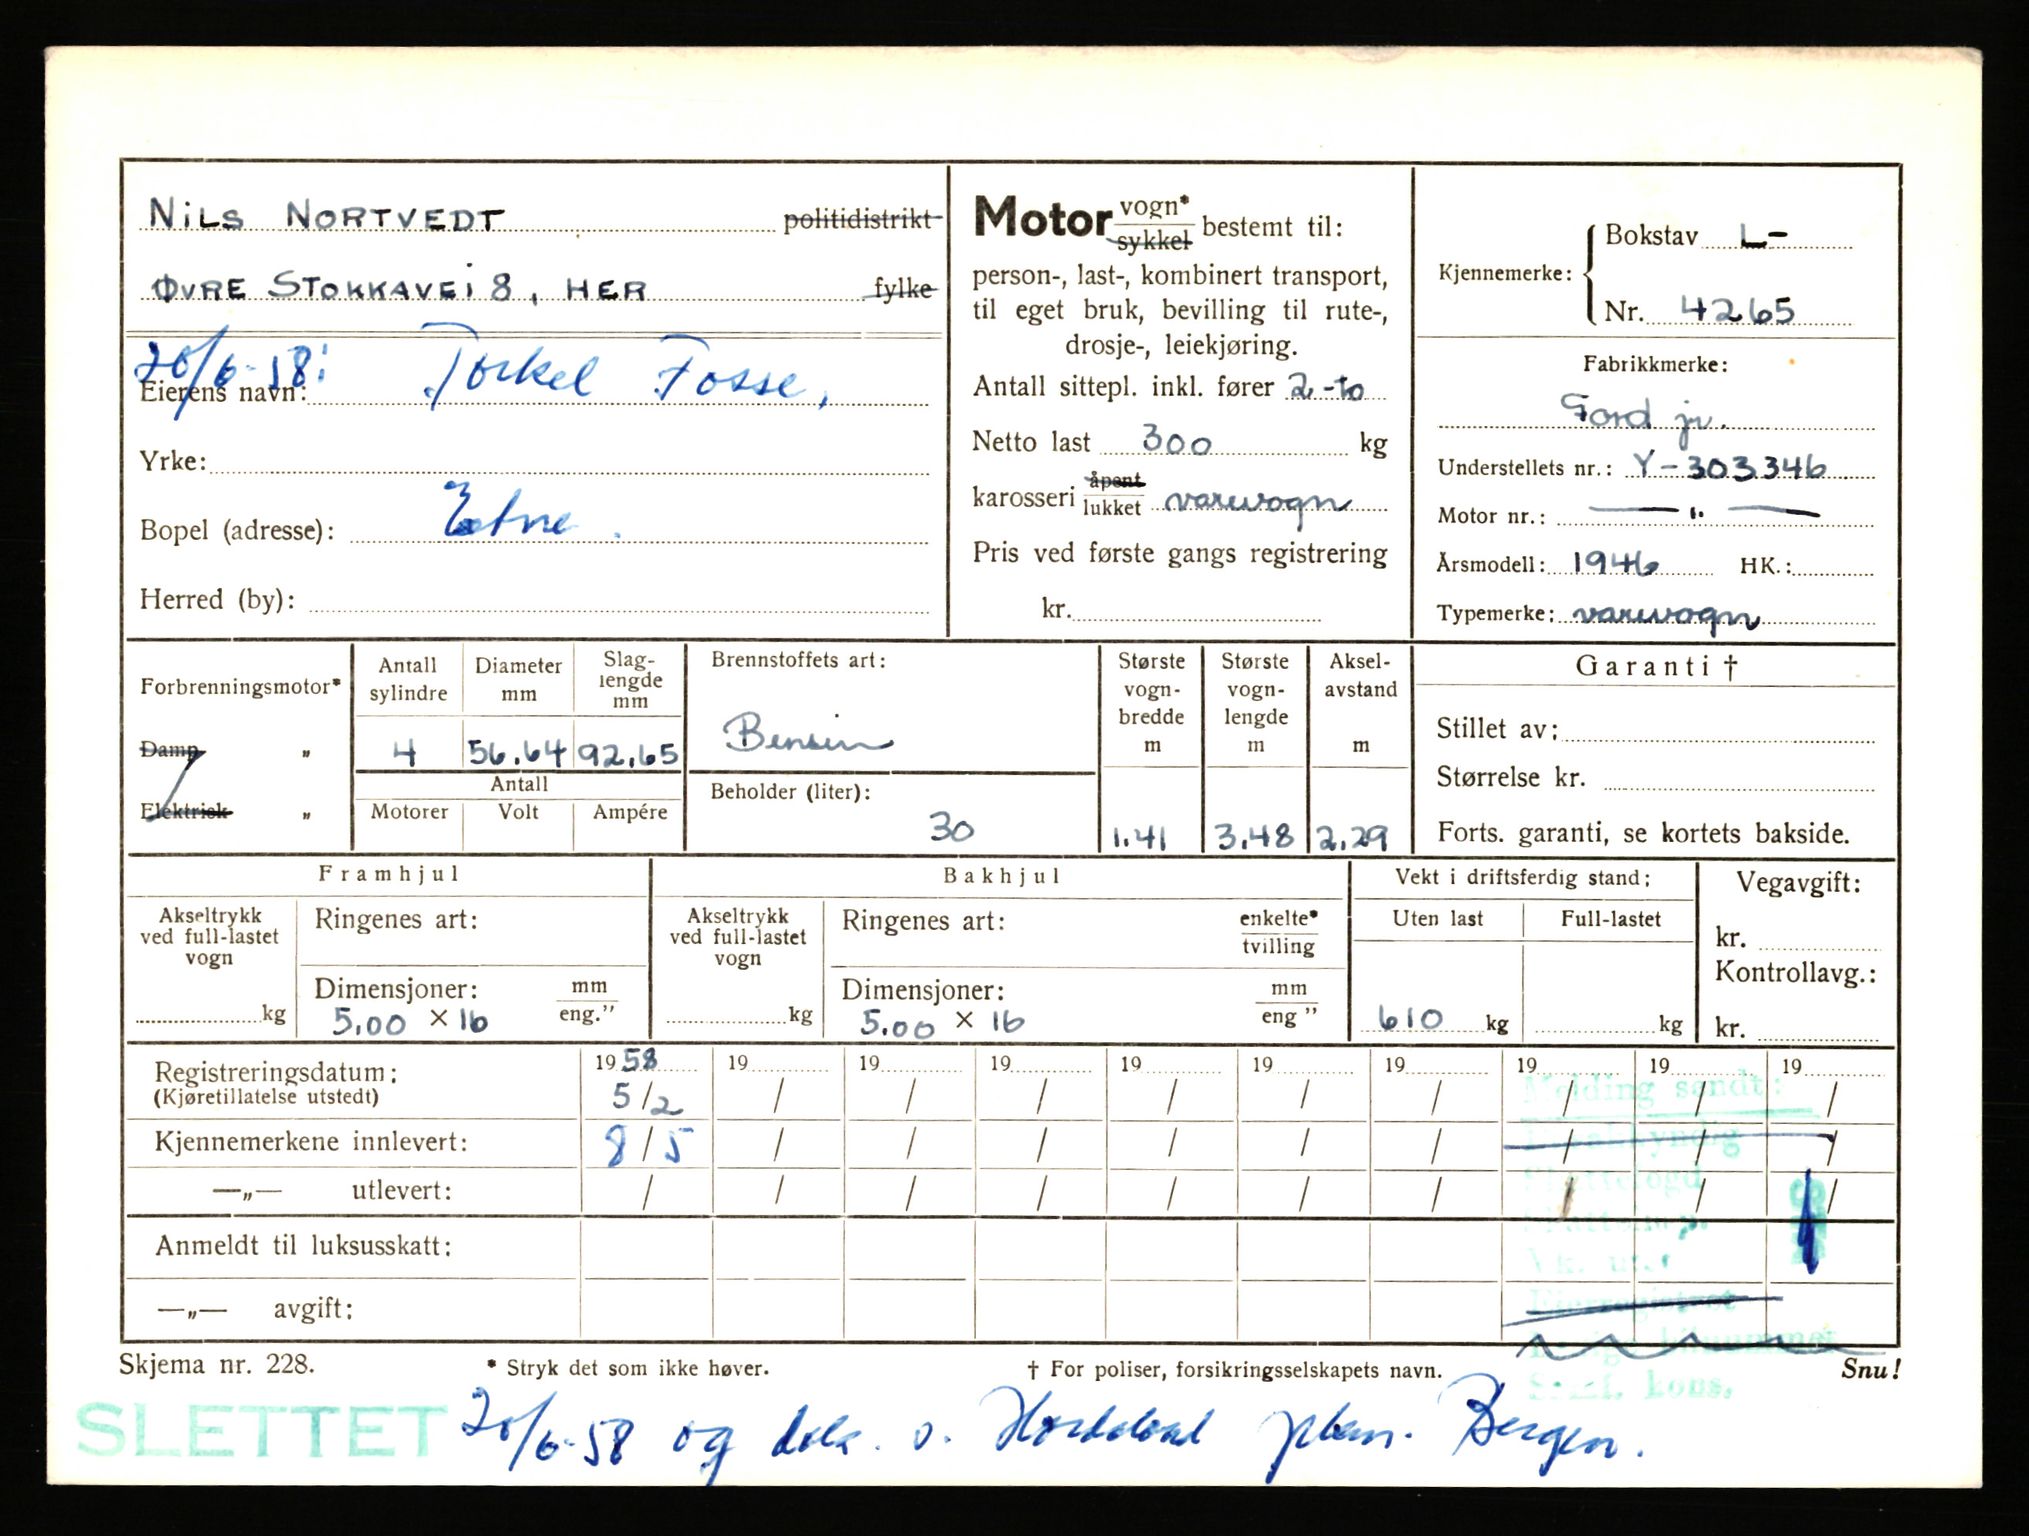 NiLS NORTVEDT politidistrikt
ØVRE STOKKAVEi 8, HER fylke
20/6-58: Torkel Fosse,
Eierens navn:
Yrke:
Bopel (adresse): Etne.
Herred (by):
Motor vogn* sykkel bestemt til:
person-, last-, kombinert transport,
til eget bruk, bevilling til rute-,
drosje-, leiekjøring.
Antall sittepl. inkl. fører 2-to
Netto last 300 kg
karosseri åpent lukket varevogn
Pris ved første gangs registrering
kr.
Kjennemerke: Bokstav L-
Nr. 4265
Fabrikkmerke:
Ford jr.
Understellets nr.: Y-303346
Motor nr.: — " —
Årsmodell: 1946 HK.:
Typemerke: varevogn
Forbrenningsmotor*
Damp „
Elektrisk „
Antall sylindre
Diameter mm
Slag-lengde mm
4 56.64 92.65
Antall
Motorer Volt Ampére
Brennstoffets art:
Bensin
Beholder (liter):
30
Største vogn-bredde m
1.41
Største vogn-lengde m
3.48
Aksel-avstand m
2.29
Garanti †
Stillet av:
Størrelse kr.
Forts. garanti, se kortets bakside.
Framhjul
Akseltrykk ved full-lastet vogn
kg
Ringenes art:
Dimensjoner: mm eng."
5.00 × 16
Bakhjul
Akseltrykk ved full-lastet vogn
kg
Ringenes art: enkelte* tvilling
Dimensjoner: mm eng "
5.00 × 16
Vekt i driftsferdig stand:
Uten last Full-lastet
610 kg kg
Vegavgift:
kr.
Kontrollavg.:
kr.
Registreringsdatum: 1958 19 19 19 19 19 19 19 19 19
(Kjøretillatelse utstedt) 5/2 / / / / / / / / /
Kjennemerkene innlevert: 8/5 / / / / / / / / /
—„— utlevert: / / / / / / / / / /
Anmeldt til luksusskatt:
—„— avgift:
Melding sendt:
Skjema nr. 228. * Stryk det som ikke høver. † For poliser, forsikringsselskapets navn. Snu!
SLETTET 20/6-58 og dok. s. Hordaland Bergen.